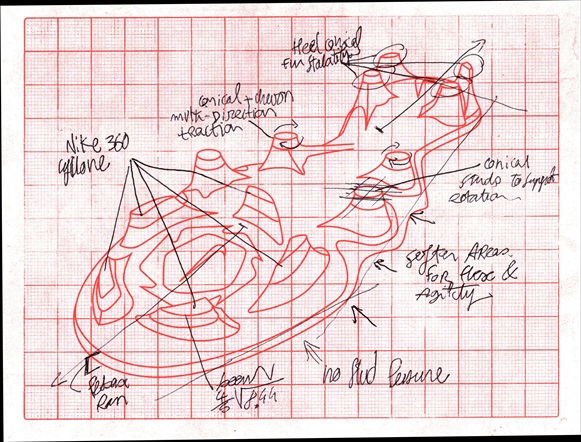 Heel conical
for stability
conical + chevron
multi-direction
traction
Nike 360
cyclone
conical
studs to support
rotation
softer Areas
for flex &
Agility
no stud pressure